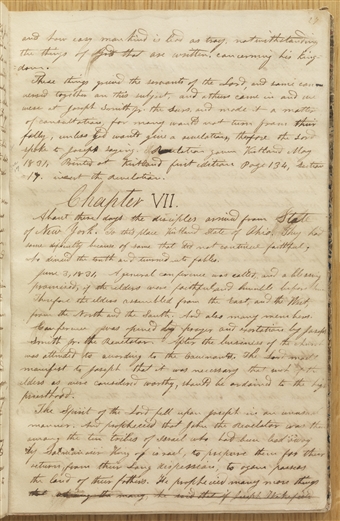 and how easy man kind is led as tray, notwithstanding
the things of God that are written, concerning his king-
dom.
These things grieved the servants of the Lord, and some con-
versed together on this subject, and others came in and we
were at Joseph Smith jr. the seers, and made it a matter
of consultation, for many would not turn from their
folly, unless God would give a revelation, therefore the Lord
spoke to Joseph saying. Revelation given Kirtland May
1831, Printed at Kirtland first edition Page 134, Section
17, insert the revelation.
Chapter VII.
About these days the disciples arived from State
of New York. to this place Kirtland State of Ohio. They had
some difficulty because of some that did not continue faithful,
who denied the truth and turned into fables.
June 3, 1831. A general conference was called, and a blessing
promised, if the elders were faithful, and humble before
Therefore the elders assembled from the East, and the West,
from the North and the South. And also many members.
Conference was opened by prayer and exortation by Joseph
Smith jr. the Revelator. After the business of the church
was attended to according to the Covinants. The Lord made
manifest to Joseph that it was necessary that such of the
elders as were considered worthy, should be ordained to the high
priesthood.
The spirit of the Lord fell upon Joseph in an unusual
manner. And prophecied that John the Revelator was then
among the ten tribes of Israel who had been led away
by Salmanaser King of israel, to prepare them for their
return, from their long dispersion, to again possess
the land of their fathers. He prophecied many more things